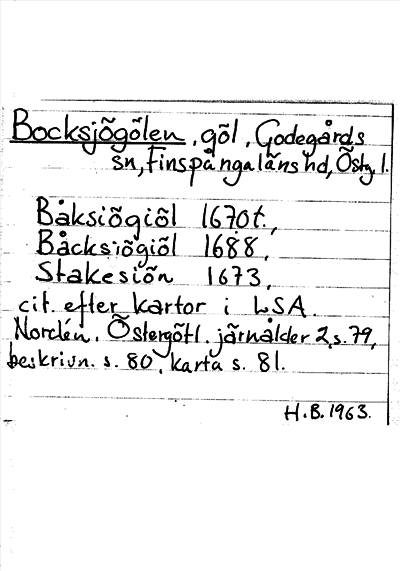 Bocksjögölen, göl, Godegårds
sn, Finspångaläns hd, Östg. l.
Båksiögiöl 1670t.,
Båcksiögiöl 1688,
Stakesiön 1673,
cit. efter kartor i LSA.
Nordén, Östergötl. järnålder 2, s. 79,
beskrivn. s. 80, karta s. 81.
H.B. 1963.